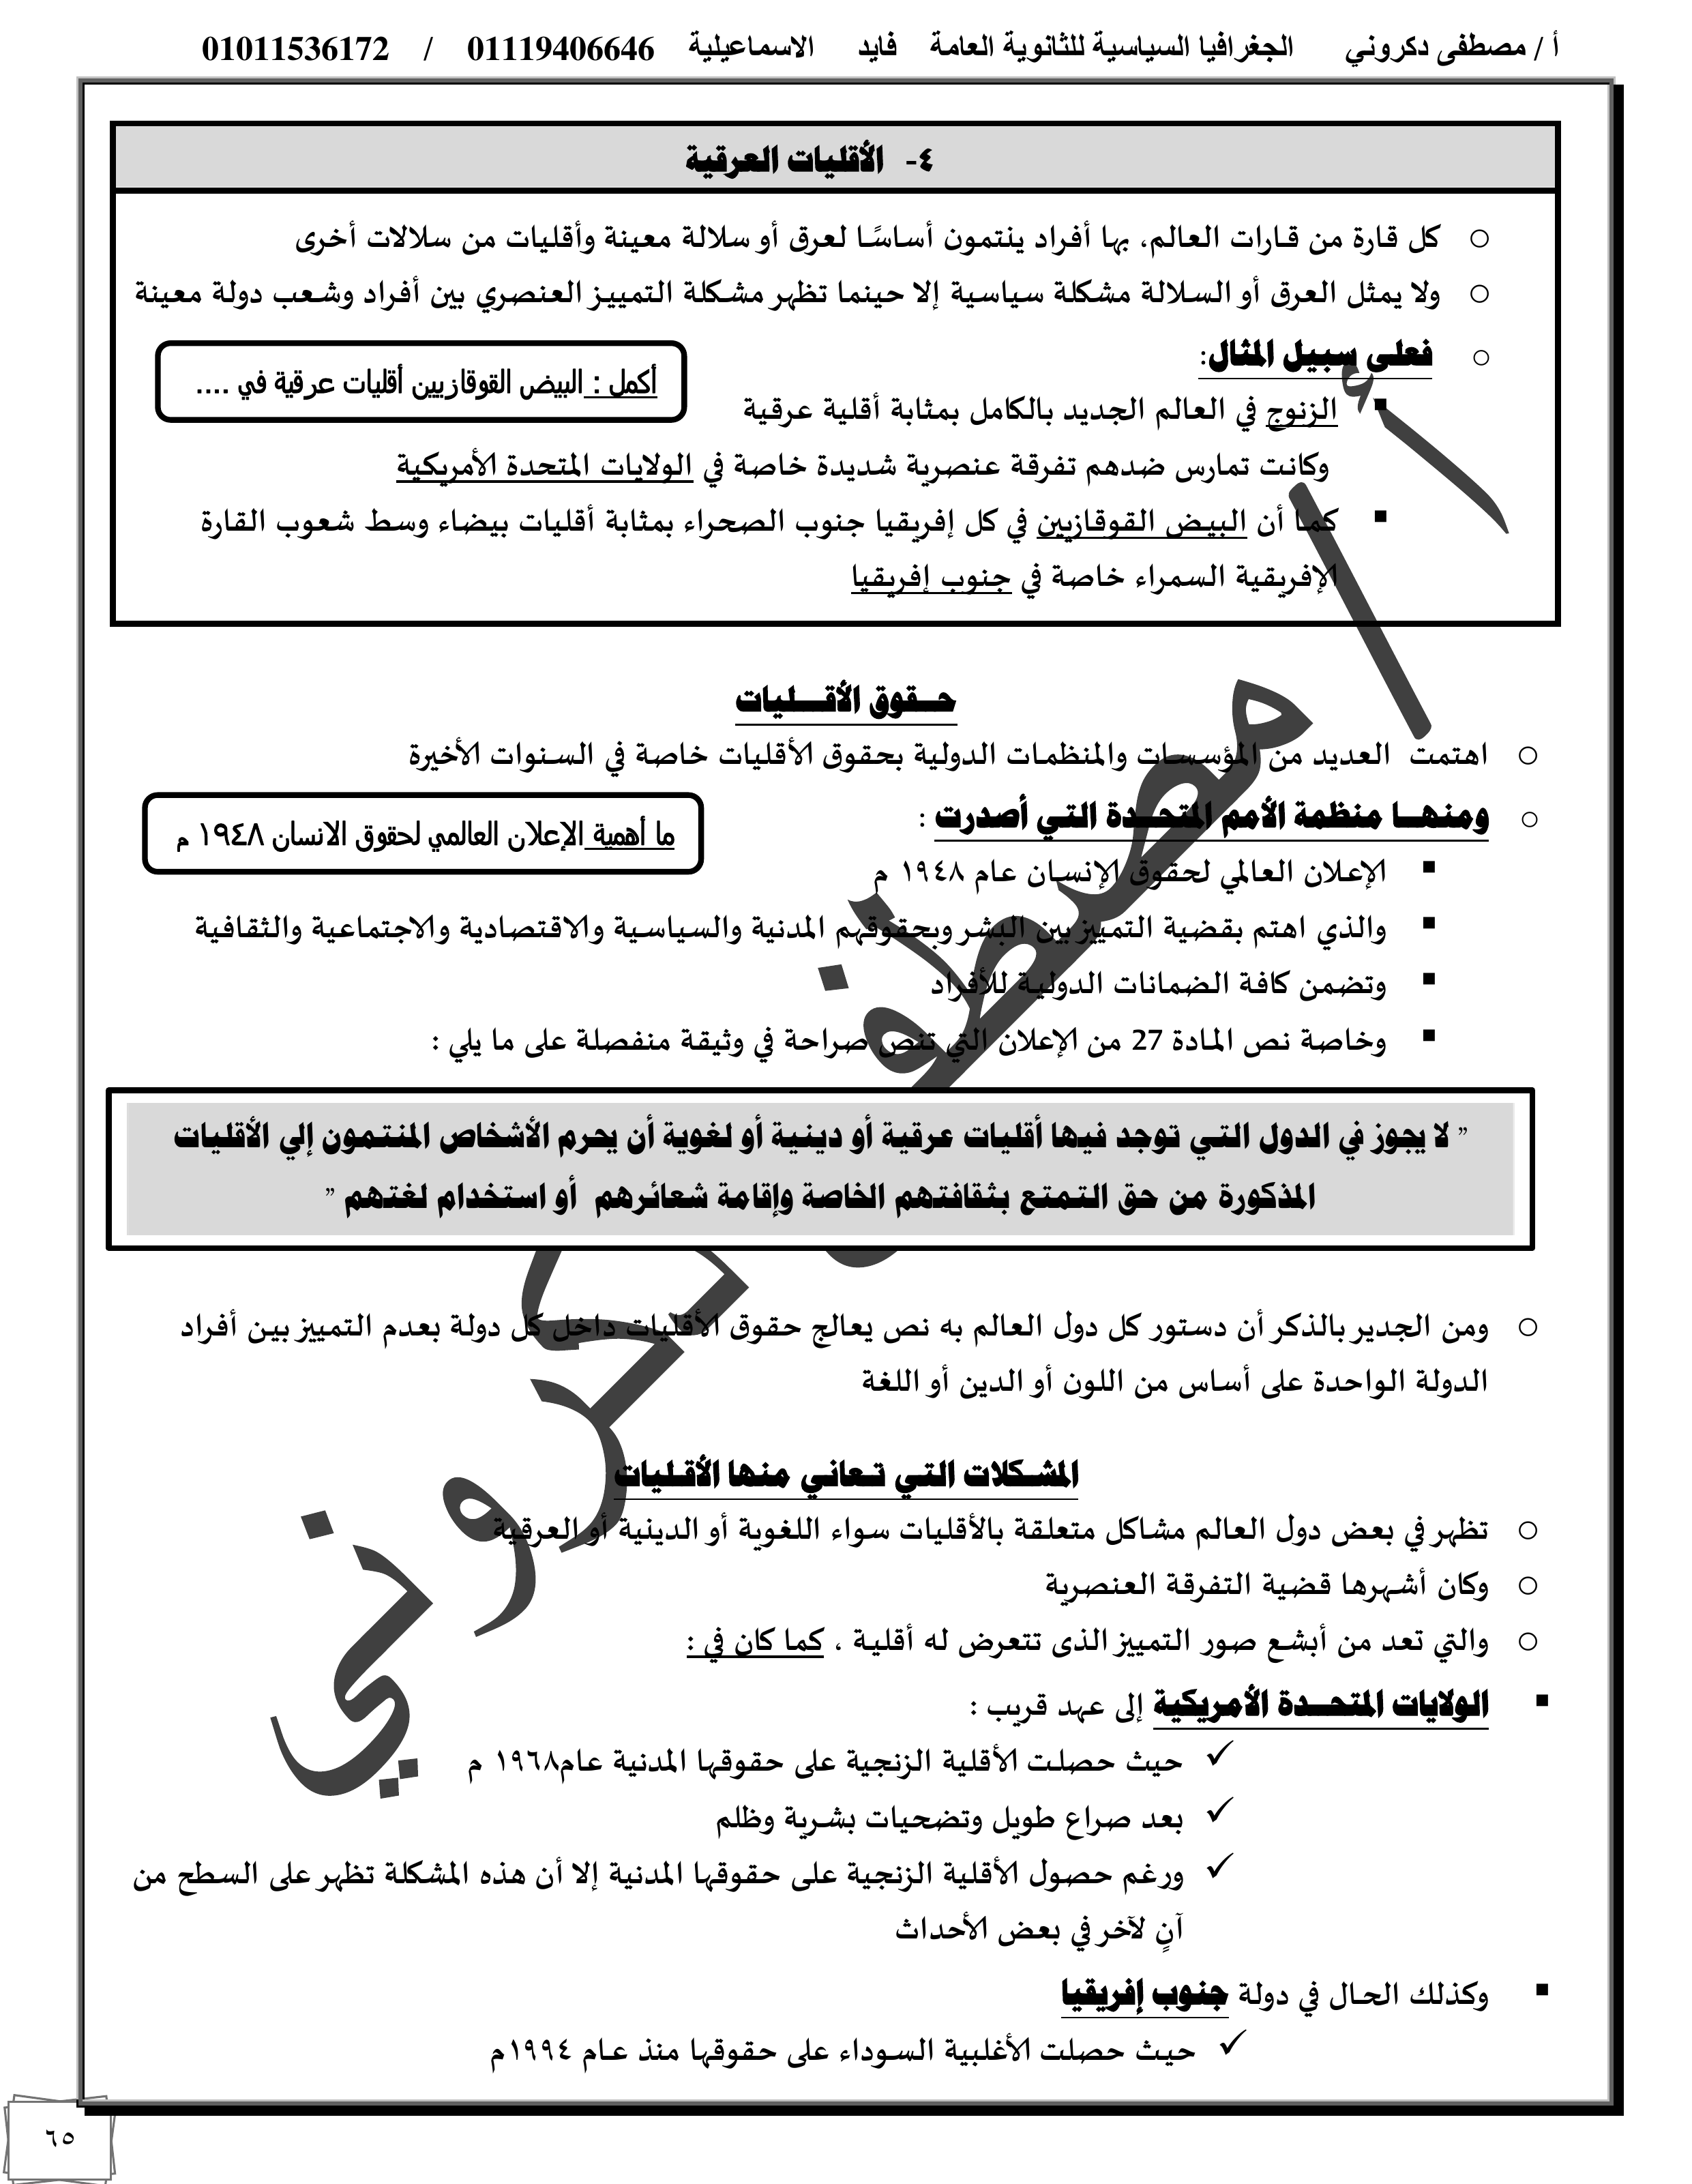 أ / مصطفى دكروني الجغرافيا السياسية للثانوية العامة فايد الاسماعيلية 01119406646 / 01011536172
٤- الأقليات العرقية
كل قارة من قارات العالم، بها أفراد ينتمون أساسًا لعرق أو سلالة معينة وأقليات من سلالات أخرى
ولا يمثل العرق أو السلالة مشكلة سياسية إلا حينما تظهر مشكلة التمييز العنصري بين أفراد وشعب دولة معينة
فعلى سبيل المثال:
أكمل : البيض القوقازيين أقليات عرقية في ....
الزنوج في العالم الجديد بالكامل بمثابة أقلية عرقية
وكانت تمارس ضدهم تفرقة عنصرية شديدة خاصة في الولايات المتحدة الأمريكية
كما أن البيض القوقازيين في كل إفريقيا جنوب الصحراء بمثابة أقليات بيضاء وسط شعوب القارة
الإفريقية السمراء خاصة في جنوب إفريقيا
حـــقوق الأقـــــليات
اهتمت العديد من المؤسسات والمنظمات الدولية بحقوق الأقليات خاصة في السنوات الأخيرة
ومنهـــا منظمة الأمم المتحـــدة التي أصدرت :
ما أهمية الإعلان العالمي لحقوق الانسان ١٩٤٨ م
الإعلان العالمي لحقوق الإنسان عام ١٩٤٨ م
والذي اهتم بقضية التمييز بين البشر وبحقوقهم المدنية والسياسية والاقتصادية والاجتماعية والثقافية
وتضمن كافة الضمانات الدولية للأفراد
وخاصة نص المادة 27 من الإعلان التي تنص صراحة في وثيقة منفصلة على ما يلي :
” لا يجوز في الدول التي توجد فيها أقليات عرقية أو دينية أو لغوية أن يحرم الأشخاص المنتمون إلي الأقليات
المذكورة من حق التمتع بثقافتهم الخاصة وإقامة شعائرهم أو استخدام لغتهم ”
ومن الجدير بالذكر أن دستور كل دول العالم به نص يعالج حقوق الأقليات داخل كل دولة بعدم التمييز بين أفراد
الدولة الواحدة على أساس من اللون أو الدين أو اللغة
المشـكلات التي تـعاني منها الأقـليات
تظهر في بعض دول العالم مشاكل متعلقة بالأقليات سواء اللغوية أو الدينية أو العرقية
وكان أشهرها قضية التفرقة العنصرية
والتي تعد من أبشع صور التمييز الذى تتعرض له أقلية ، كما كان في :
الولايات المتحـــدة الأمريكية إلى عهد قريب :
حيث حصلت الأقلية الزنجية على حقوقها المدنية عام١٩٦٨ م
بعد صراع طويل وتضحيات بشرية وظلم
ورغم حصول الأقلية الزنجية على حقوقها المدنية إلا أن هذه المشكلة تظهر على السطح من
آنٍ لآخر في بعض الأحداث
وكذلك الحال في دولة جنوب إفريقيا
حيث حصلت الأغلبية السوداء على حقوقها منذ عام ١٩٩٤م
٦٥
أ / مصطفى دكروني